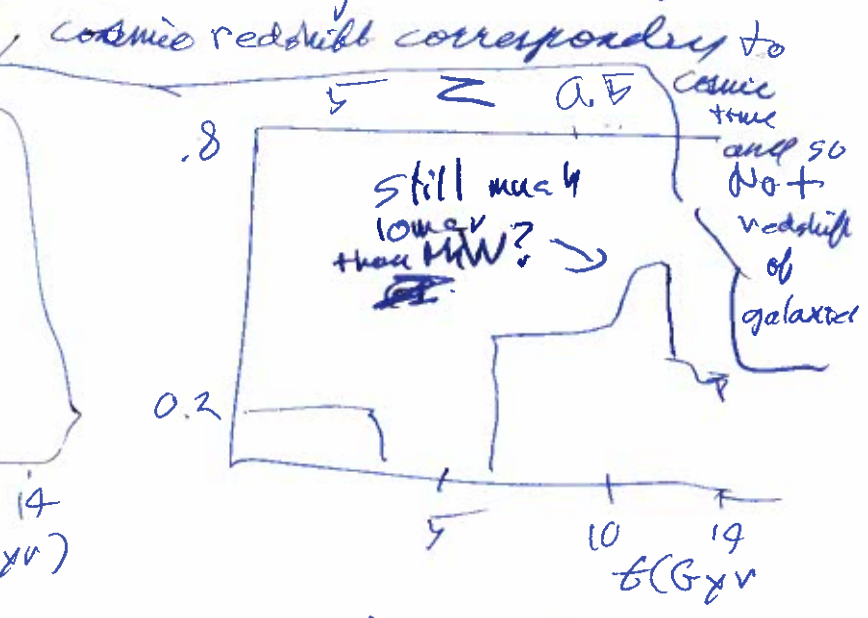 cosmic redshift corresponding to
5 Z 0.5
cosmic
time
and so
Not
redshift
of
galaxies
.8
Still much
lower
than MW?
0.2
14
yr)
5 10 14
t(Gyr